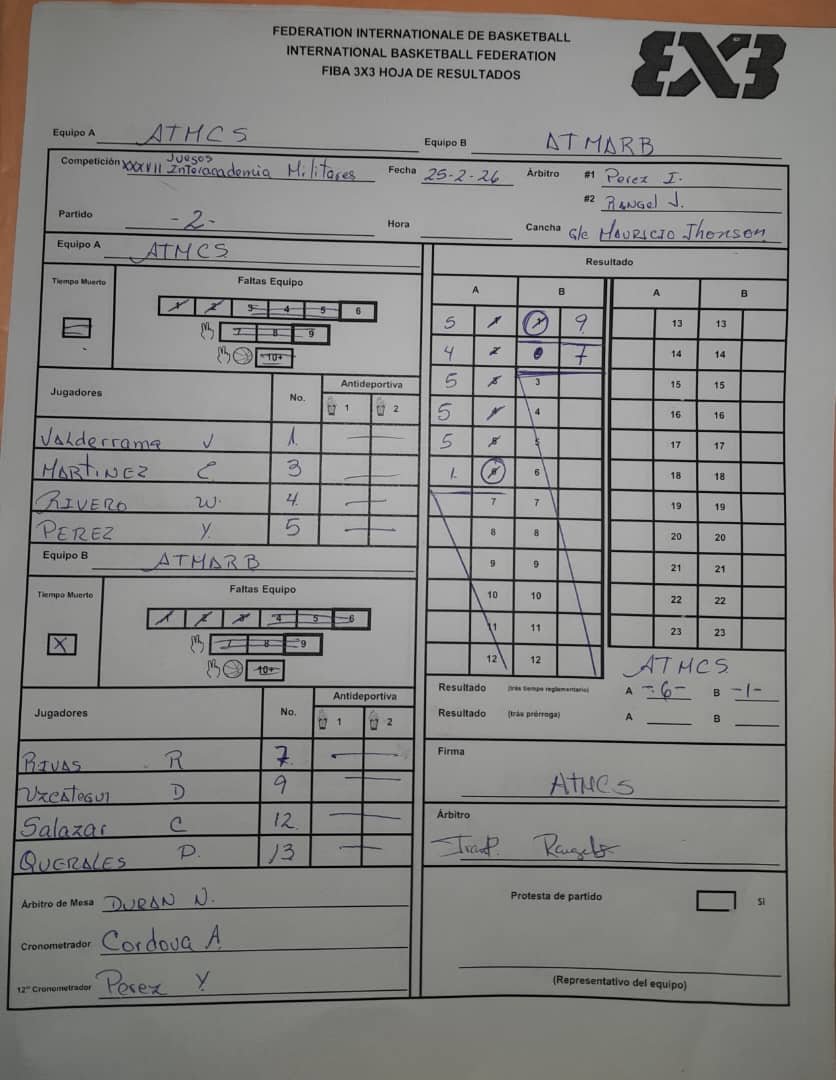 FEDERATION INTERNATIONALE DE BASKETBALL
INTERNATIONAL BASKETBALL FEDERATION
FIBA 3X3 HOJA DE RESULTADOS
3X3
Equipo A ATMCS Equipo B ATMARB
Competición XXXVII Juegos Interacademia Militares Fecha 25-2-26 Árbitro #1 Perez I.
#2 RANGEL J.
Partido -2- Hora Cancha G/e MAURICIO Jhonson
Equipo A ATMCS
Resultado
Tiempo Muerto Faltas Equipo
1 2 3 4 5 6
7 8 9
10+
Jugadores No. Antideportiva
1 2
Valderrama J 1.
MARTINEZ C. 3
RIVERO W. 4.
PEREZ Y. 5
Equipo B ATMARB
Tiempo Muerto Faltas Equipo
X
1 2 3 4 5 6
7 8 9
10+
Jugadores No. Antideportiva
1 2
RIVAS R 7.
UZCATEGUI D 9
Salazar C 12
QUERALES P. 13
Árbitro de Mesa DURAN N.
Cronometrador Cordova A.
12" Cronometrador Perez Y
A B A B
5 1 1 9 13 13
4 2 7 14 14
5 3 3 15 15
5 4 4 16 16
5 5 5 17 17
1. 6 6 18 18
7 7 19 19
8 8 20 20
9 9 21 21
10 10 22 22
11 11 23 23
12 12
ATMCS
Resultado (trás tiempo reglamentario) A -6- B -1-
Resultado (trás prórroga) A B
Firma
ATMCS
Árbitro
Protesta de partido Si
(Representativo del equipo)